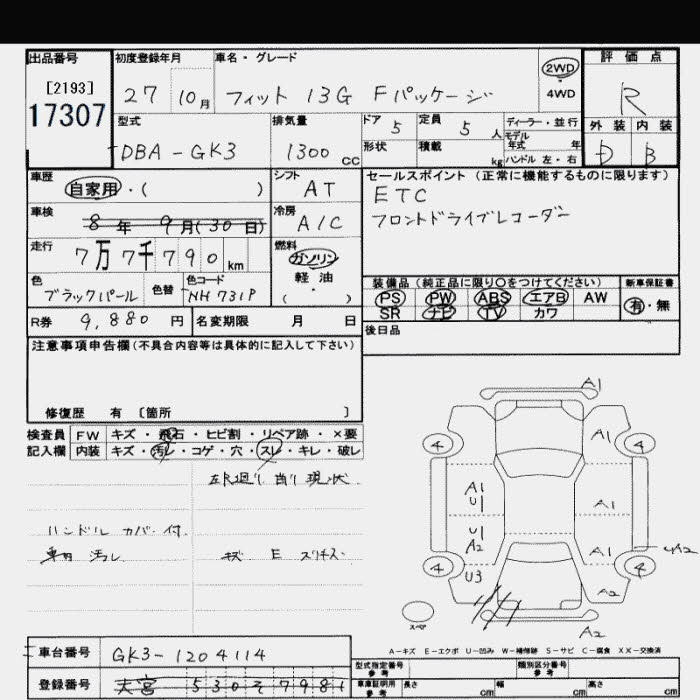 出品番号 初度登録年月 車名・グレード 2WD 評価点
[2193] 27 10月 フィット 13G Fパッケージ 4WD R
17307 型式 排気量 ドア 5 定員 5 人 ディーラー・並行
モデル年式 年 外装 内装
DBA-GK3 1300 cc 形状 積載 kg ハンドル 左・右 D B
車歴 シフト セールスポイント (正常に機能するものに限ります)
自家用・( ) AT ETC
車検 8年 9月(30日) 冷房 A/C フロントドライブレコーダー
走行 7万7千790km 燃料 ガソリン
軽油・( )
色 ブラックパール 色替 色コード NH731P
装備品 (純正品に限り○をつけてください) 新車保証書
PS PW ABS エアB AW 有・無
SR ナビ TV カワ
R券 9,880円 名変期限 月 日 後日品
注意事項申告欄 (不具合内容等は具体的に記入して下さい)
修復歴 有 〔箇所 〕
検査員 FW キズ・飛石・ヒビ割・リペア跡・×要
記入欄 内装 キズ・汚レ・コゲ・穴・スレ・キレ・破レ
現状
ハンドル カバー付
汚レ キズ E
A1
4 A1 4
A1
U1 A1
U1
A2 A1
4 U3 4 A2
A2
スペア A2
A-キズ E-エクボ U-凹み W-補修跡 S-サビ C-腐食 XX-交換済
車台番号 GK3-1204114 型式指定番号 参考 類別区分番号 参考
登録番号 530 そ 7981 車庫証明用 参考 長さ cm 幅 cm 高さ cm